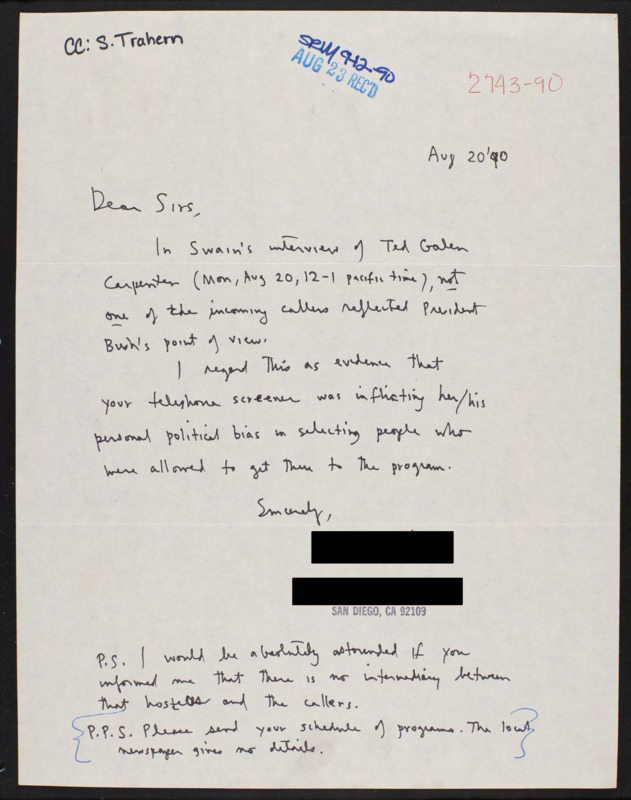 CC: S. Trahern
SRW 9-12-90
AUG 23 REC'D
2743-90
Aug 20 '90
Dear Sirs,
In Swain's interview of Ted Galen
Carpenter (Mon, Aug 20, 12-1 pacific time), not
one of the incoming callers reflected President
Bush's point of view.
I regard This as evidence that
your telephone screener was inflicting her/his
personal political bias in selecting people who
were allowed to get thru to the program.
Sincerely,
SAN DIEGO, CA 92109
P.S. I would be absolutely astounded if you
informed me that there is no intermediary between
that hostess and the callers.
P.P.S. Please send your schedule of programs. The local
newspaper gives no details.